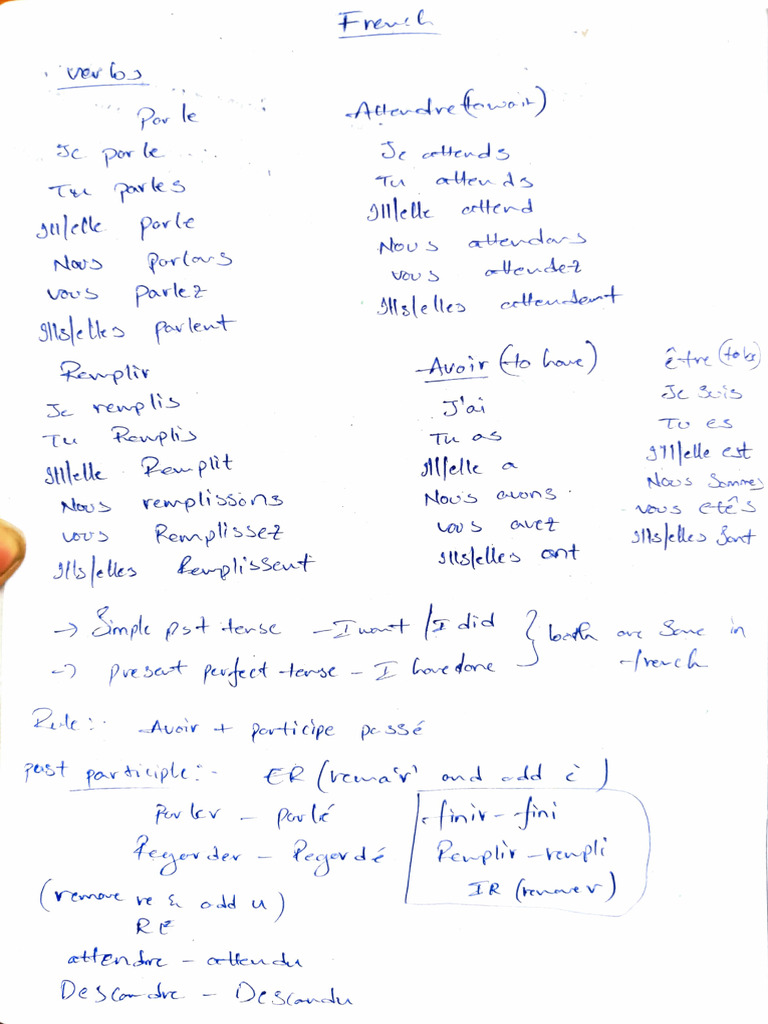 French
verbs
Parle
Je parle
Tu parles
Ill/elle parle
Nous parlons
vous parlez
Ills/elles parlent
Attendre (to wait)
Je attends
Tu attends
Ill/elle attend
Nous attendons
vous attendez
Ills/elles attendent
Remplir
Je remplis
Tu Remplis
Ill/elle Remplit
Nous remplissons
vous Remplissez
Ills/elles Remplissent
Avoir (to have)
J'ai
Tu as
Ill/elle a
Nous avons
vous avez
Ills/elles ont
être (to be)
Je suis
Tu es
Ill/elle est
Nous sommes
vous etês
Ills/elles sont
→ Simple pst tense - I went / I did
→ present perfect tense - I have done
both are same in
french
Rule:- Avoir + participe passé
past participle:- ER (remove 'r' and add é)
Parler - parlé
Regarder - Regardé
finir - fini
Remplir - rempli
IR (remove r)
(remove re & add u)
RE
attendre - attendu
Descandre - Descandu